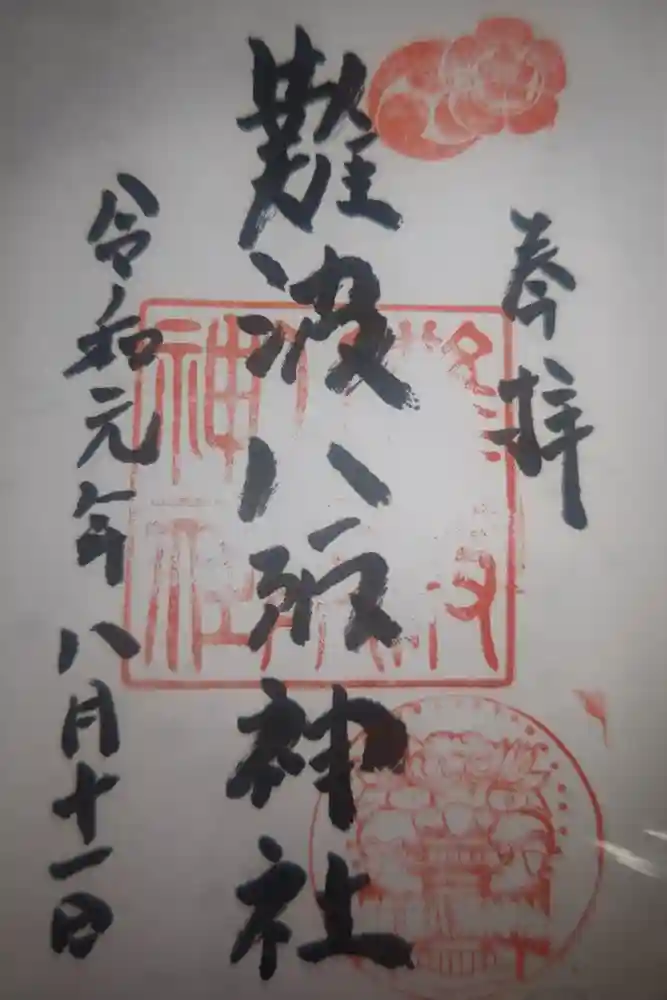 奉拝
難波八阪神社
令和元年八月十一日
神社